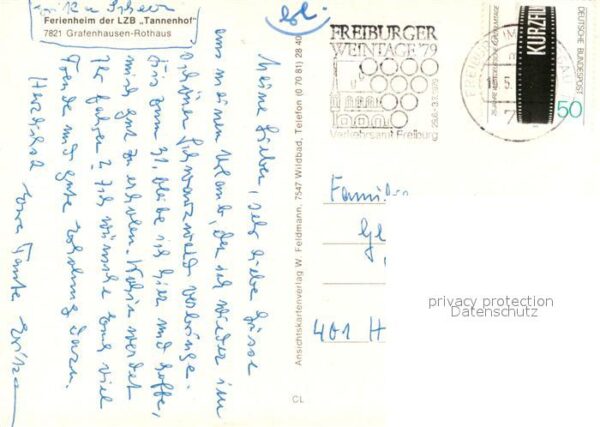 Erika Scheu
Ferienheim der LZB „Tannenhof"
7821 Grafenhausen-Rothaus
Meine Lieben, sehr liebe Grüsse
aus meinem Urlaub, den ich wieder im
schönen Schwarzwald verbringe.
Bis zum 31. bleibe ich hier und hoffe,
mich gut zu erholen. Wohin werdet
Ihr fahren? Ich wünsche Euch viel
Freude und gute Erholung dazu.
Herzlichst Eure Tante Erika
Ansichtskartenverlag W. Feldmann, 7547 Wildbad, Telefon (0 70 81) 28 40
CL
FREIBURGER
WEINTAGE '79
Verkehrsamt Freiburg
FREIBURG IM
KURZFI
DEUTSCHE BUNDESPOST
50
Famili
401 H
privacy protection
Datenschutz